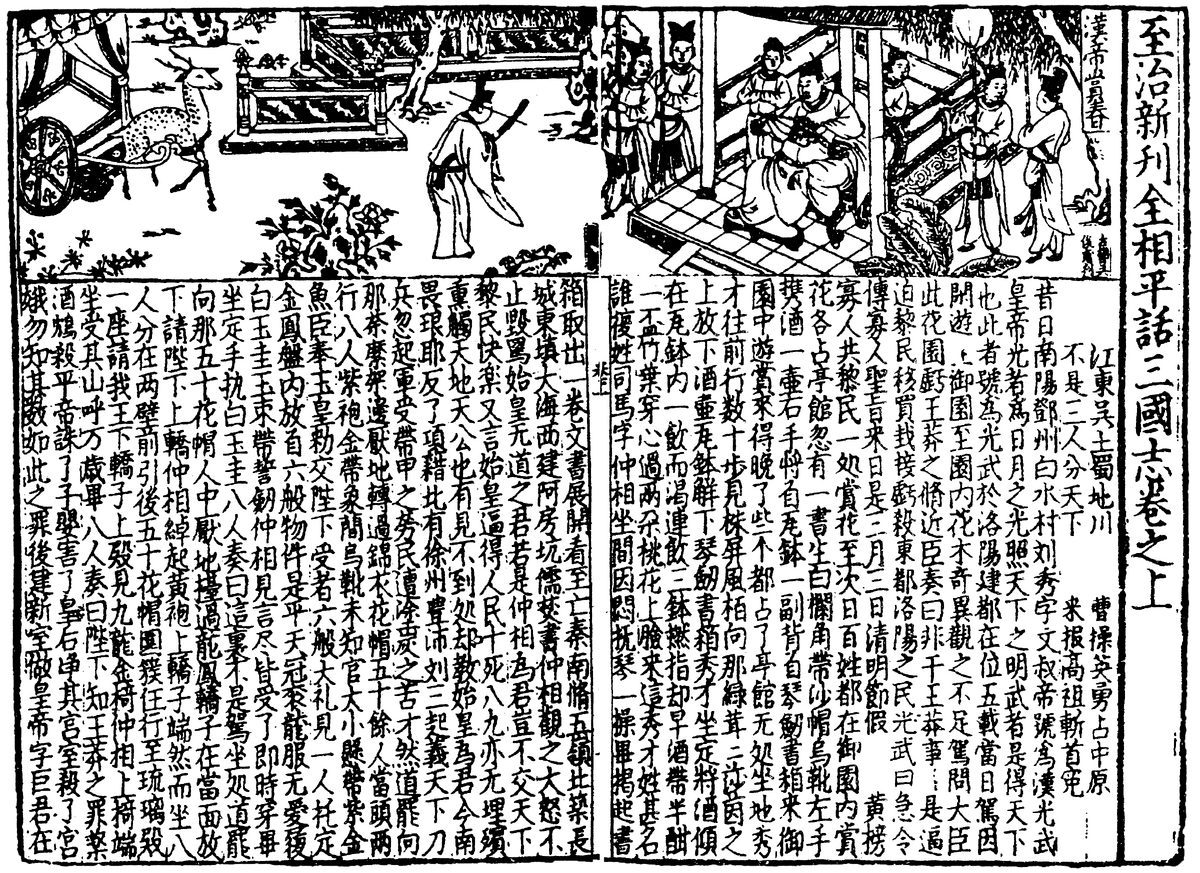 至治新刊全相平話三國志卷之上
漢帝賞春
江東吳土蜀地川　曹操英勇占中原
不是三人分天下　來报高祖斬首冤
昔日南陽鄧州白水村刘秀字文叔帝號為漢光武
皇帝光者為日月之光照天下之明武者是得天下
也此者號為光武於洛陽建都在位五載當日駕因
閑遊上御園至園内花木奇異觀之不足駕問大臣
此花園虧王莽之脩近臣奏曰非干王莽事是逼
迫黎民移買栽接虧殺東都洛陽之民光武曰急令
傳寡人聖旨來日是三月三日清明節假　黄榜
寡人共黎民一処賞花至次日百姓都在御園内賞
花各占亭館忽有一書生白襴角帶沙帽烏靴左手
携酒一壷右手將自瓦鉢一副背自琴劔書箱來御
園中遊賞來得晚了些个都占了亭館无処坐地秀
才往前行数十步見株屏風柏向那緑茸茸莎茵之
上放下酒壷瓦鉢解下琴劔書箱秀才坐定將酒傾
在瓦鉢内一飲而渴連飲三鉢撚指却早酒帶半酣
一盃竹葉穿心過兩朶桃花上臉來這秀才姓甚名
誰復姓司馬字仲相坐間因悶抚琴一操畢揭起書
箱取出一卷文書展開看至亡秦南脩五嶺北築長
城東填大海西建阿房坑儒焚書仲相觀之大怒不
止毀罵始皇无道之君若是仲相為君豈不交天下
黎民快樂又言始皇逼得人民十死八九亦无埋殯
重觸天地天公也有見不到処却教始皇為君今南
畏琅耶反了項籍北有徐州豐沛刘三起義天下刀
兵忽起軍受帶甲之勞民遭塗炭之苦才然道罷向
那荼䕷架邊厭地轉過錦衣花帽五十餘人當頭兩
行八人紫袍金帶象簡烏靴未知官大小懸帶紫金
魚臣奉玉皇勑交陛下受者六般大礼見一人托定
金鳳盤内放自六般物件是平天冠衮龍服无憂履
白玉圭玉束帶誓劔仲相見言尽皆受了即時穿畢
坐定手执白玉圭八人奏曰這裏不是駕坐処道罷
向那五十花帽人中厭地擡過龍鳳轎子在當面放
下請陛下上轎仲相綽起黄袍上轎子端然而坐八
人分在两壁前引後五十花帽圍簇住行至琉璃殿
一座請我王下轎子上殿見九龍金椅仲相上椅端
坐受其山呼万歲畢八人奏曰陛下知王莽之罪藥
酒鴆殺平帝誅了子嬰害了皇后浄其宫室殺了宫
娥勿知其数如此之罪後建新室做皇帝字巨君在